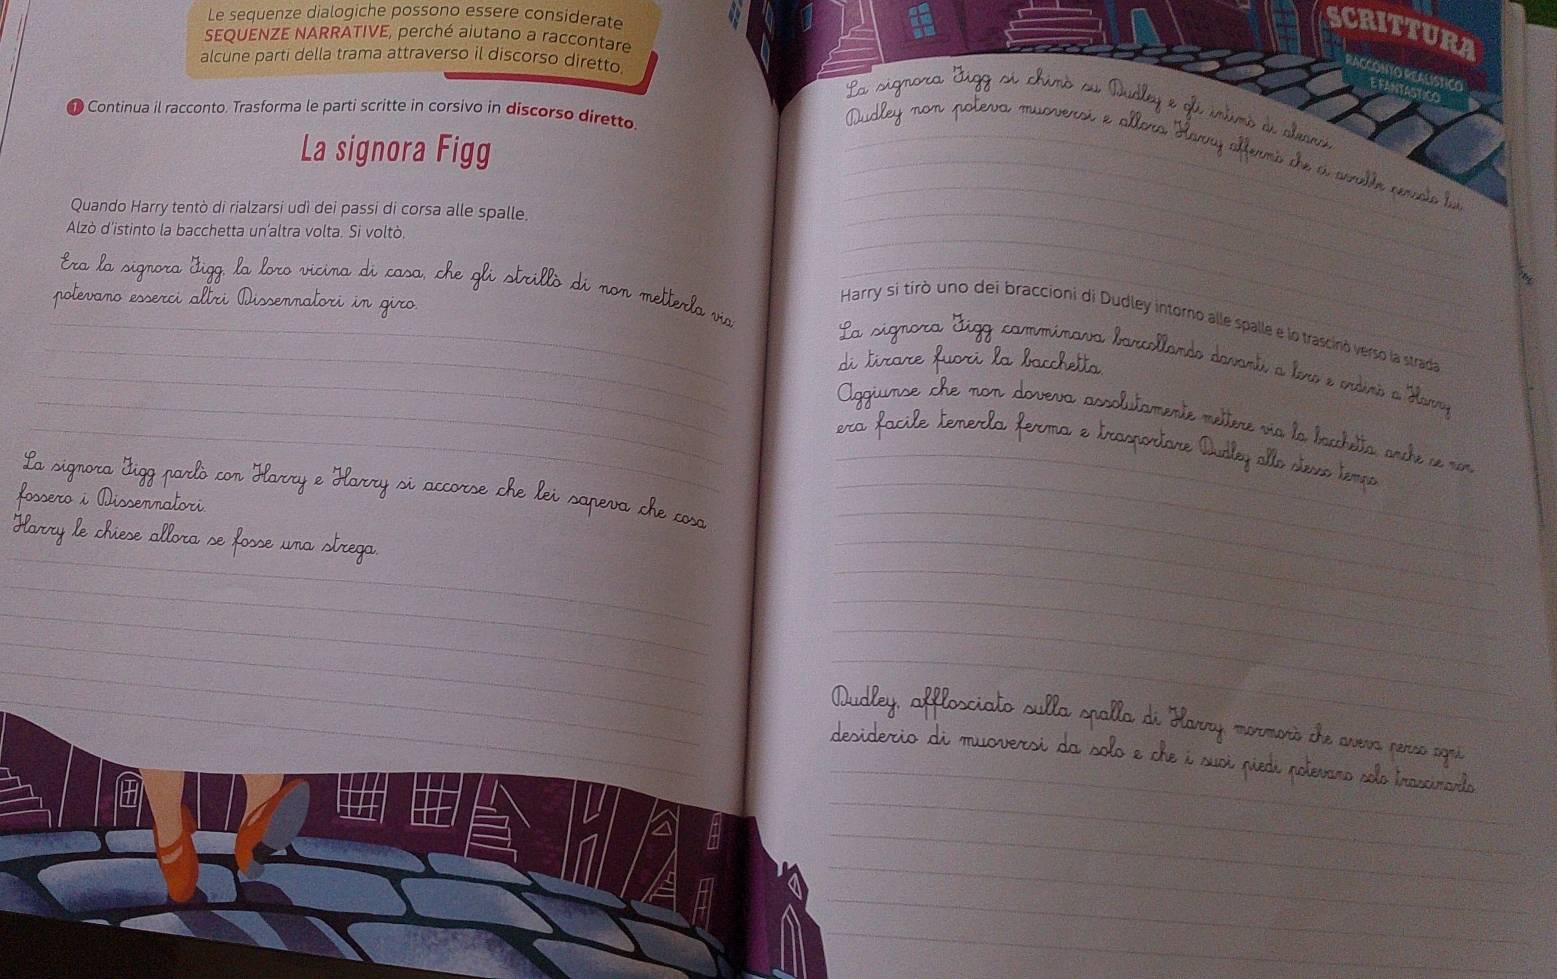 Le sequenze dialogiche possono essere considerate
SEQUENZE NARRATIVE, perché aiutano a raccontare
alcune parti della trama attraverso il discorso diretto.
1 Continua il racconto. Trasforma le parti scritte in corsivo in discorso diretto.
La signora Figg
Quando Harry tentò di rialzarsi udì dei passi di corsa alle spalle.
Alzò d'istinto la bacchetta un'altra volta. Si voltò.
Era la signora Figg, la loro vicina di casa, che gli strillò di non metterla via:
potevano esserci altri Dissennatori in giro.
La signora Figg parlò con Harry e Harry si accorse che lei sapeva che cosa
fossero i Dissennatori.
Harry le chiese allora se fosse una strega.
SCRITTURA
RACCONTO REALISTICO
E FANTASTICO
La signora Figg si chinò su Dudley e gli intimò di alzarsi.
Dudley non poteva muoversi e allora Harry affermò che ci avrebbe pensato lui.
Harry si tirò uno dei braccioni di Dudley intorno alle spalle e lo trascinò verso la strada.
La signora Figg camminava barcollando davanti a loro e ordinò a Harry
di tirare fuori la bacchetta.
Aggiunse che non doveva assolutamente mettere via la bacchetta, anche se non
era facile tenerla ferma e trasportare Dudley allo stesso tempo.
Dudley, afflosciato sulla spalla di Harry, mormorò che aveva perso ogni
desiderio di muoversi da solo e che i suoi piedi potevano solo trascinarlo.